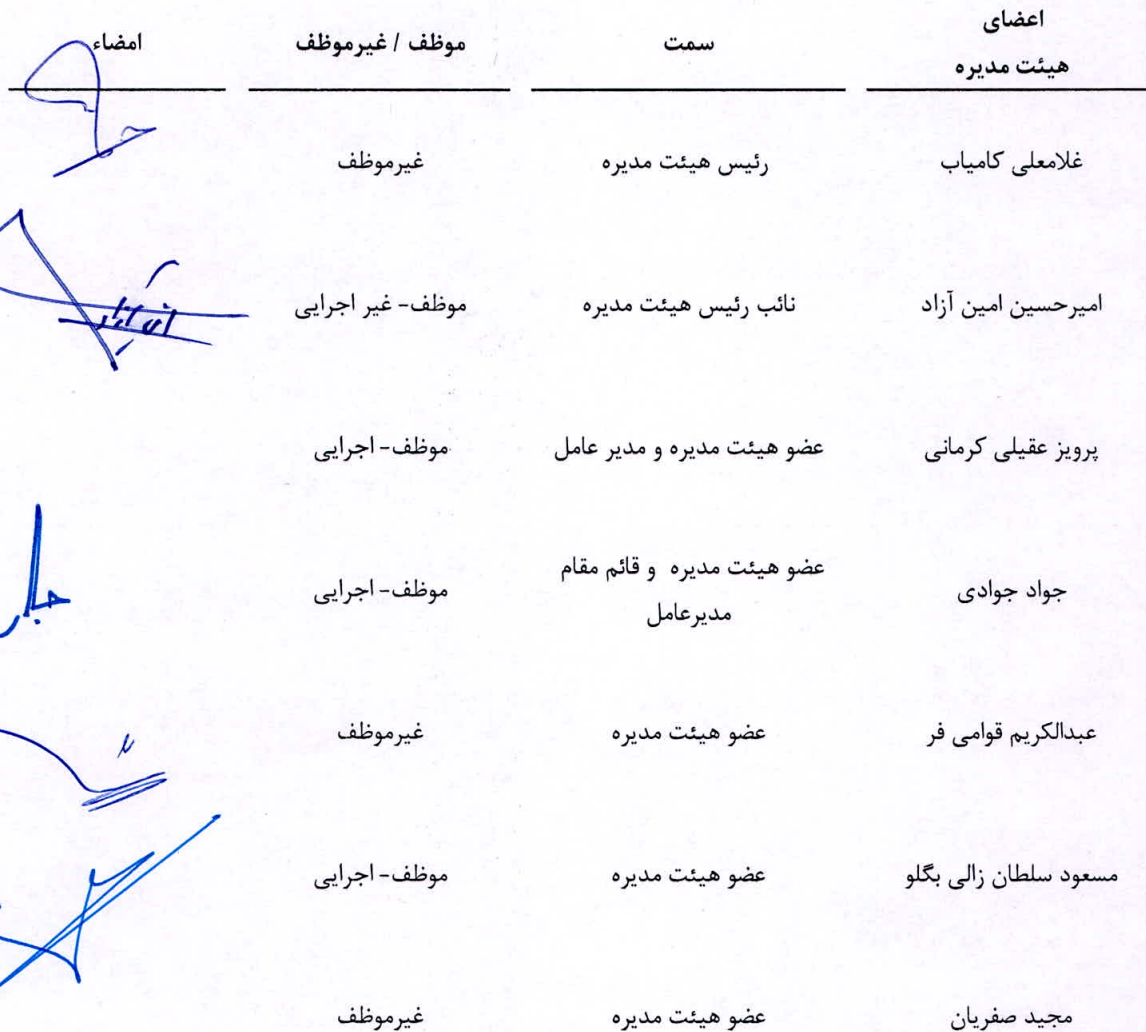 اعضای
هیئت مدیره
سمت
موظف / غیرموظف
امضاء
غلامعلی کامیاب
رئیس هیئت مدیره
غیرموظف
امیرحسین امین آزاد
نائب رئیس هیئت مدیره
موظف- غیر اجرایی
پرویز عقیلی کرمانی
عضو هیئت مدیره و مدیر عامل
موظف- اجرایی
جواد جوادی
عضو هیئت مدیره و قائم مقام
مدیرعامل
موظف- اجرایی
عبدالکریم قوامی فر
عضو هیئت مدیره
غیرموظف
مسعود سلطان زالی بگلو
عضو هیئت مدیره
موظف- اجرایی
مجید صفریان
عضو هیئت مدیره
غیرموظف